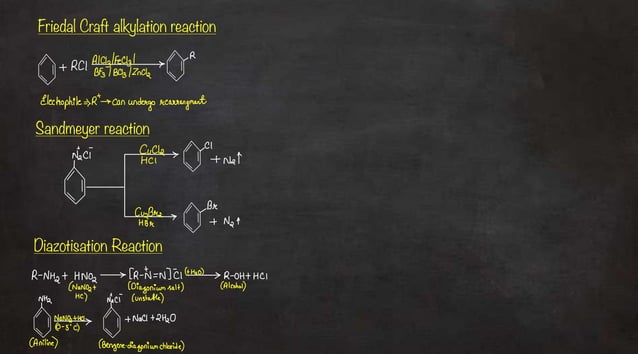 Friedal Craft alkylation reaction
R
+ RCl AlCl3/FeCl3/
BF3/BCl3/ZnCl2
Electrophile ⇒ R+ → can undergo rearrangment
Sandmeyer reaction
N2+Cl-
CuCl2 Cl
HCl + N2↑
Cu2Br2 Br
HBr + N2↑
Diazotisation Reaction
R-NH2 + HNO2 → [R-N+=N]Cl- (+H2O) → R-OH + HCl
(NaNO2+ (Diazonium salt) (Alcohol)
HCl) (unstable)
NH2 N2+Cl-
NaNO2+HCl + NaCl + 2H2O
(0-5°C)
(Aniline) (Benzene diazonium chloride)